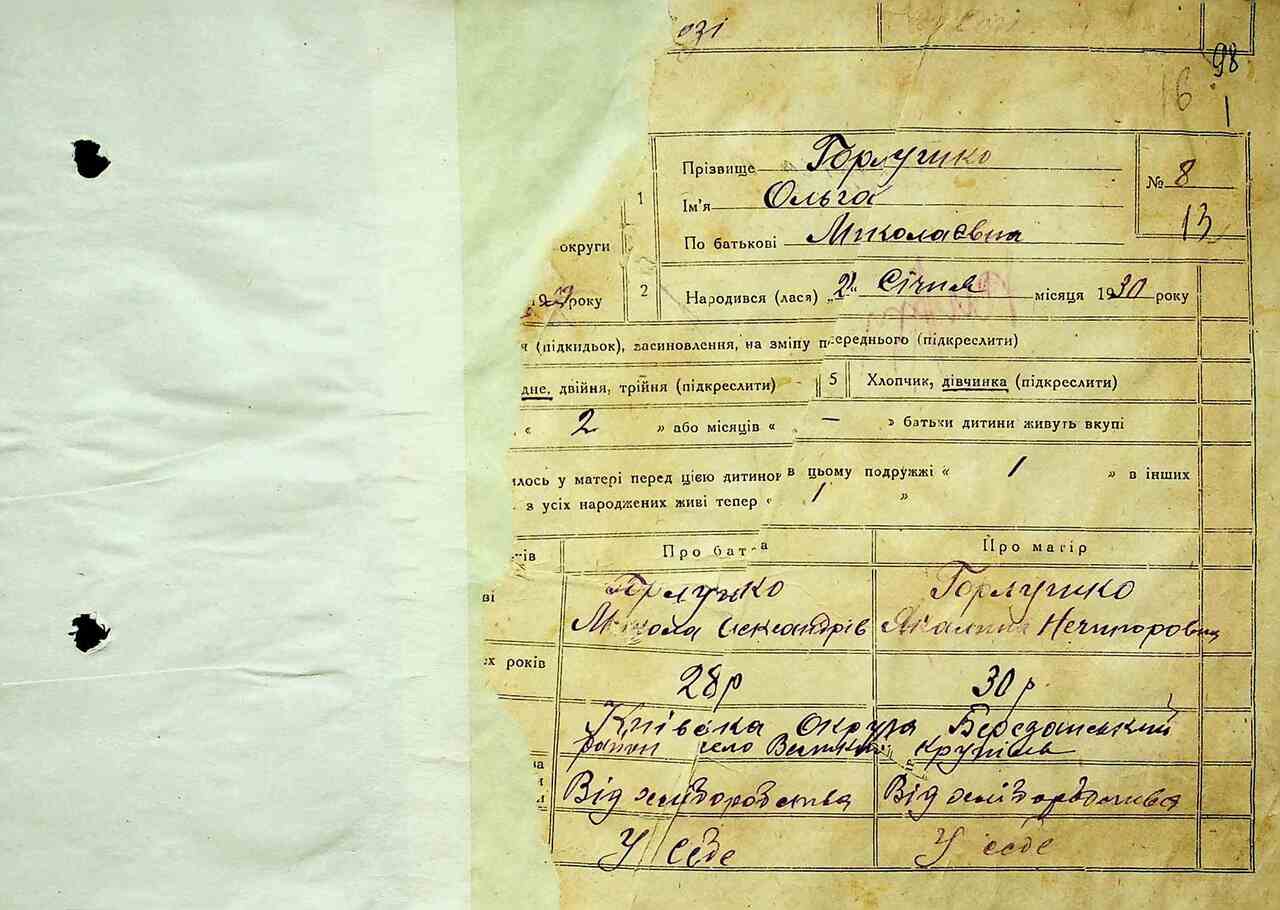 озі
98
16
1
Прізвище Горлушко
№ 8
1 Ім'я Ольга
13
округи По батькові Миколаєвна
року 2 Народився (лася) „2“ Січня місяця 1930 року
я (підкидьок), засиновлення, на зміпу попереднього (підкреслити)
дне, двійня, трійня (підкреслити) 5 Хлопчик, дівчинка (підкреслити)
« 2 » або місяців « — » батьки дитини живуть вкупі
илось у матері перед цією дитиною в цьому подружжі « 1 » в інших
з усіх народжених живі тепер « 1 »
ків Про батька Про матір
Горлушко Горлушко
ві Микола Нечипоровна
их років 28 р 30 р.
Київська Округа
район село Великий Крупіль
Від хліборобства Від хліборобства
У себе У себе